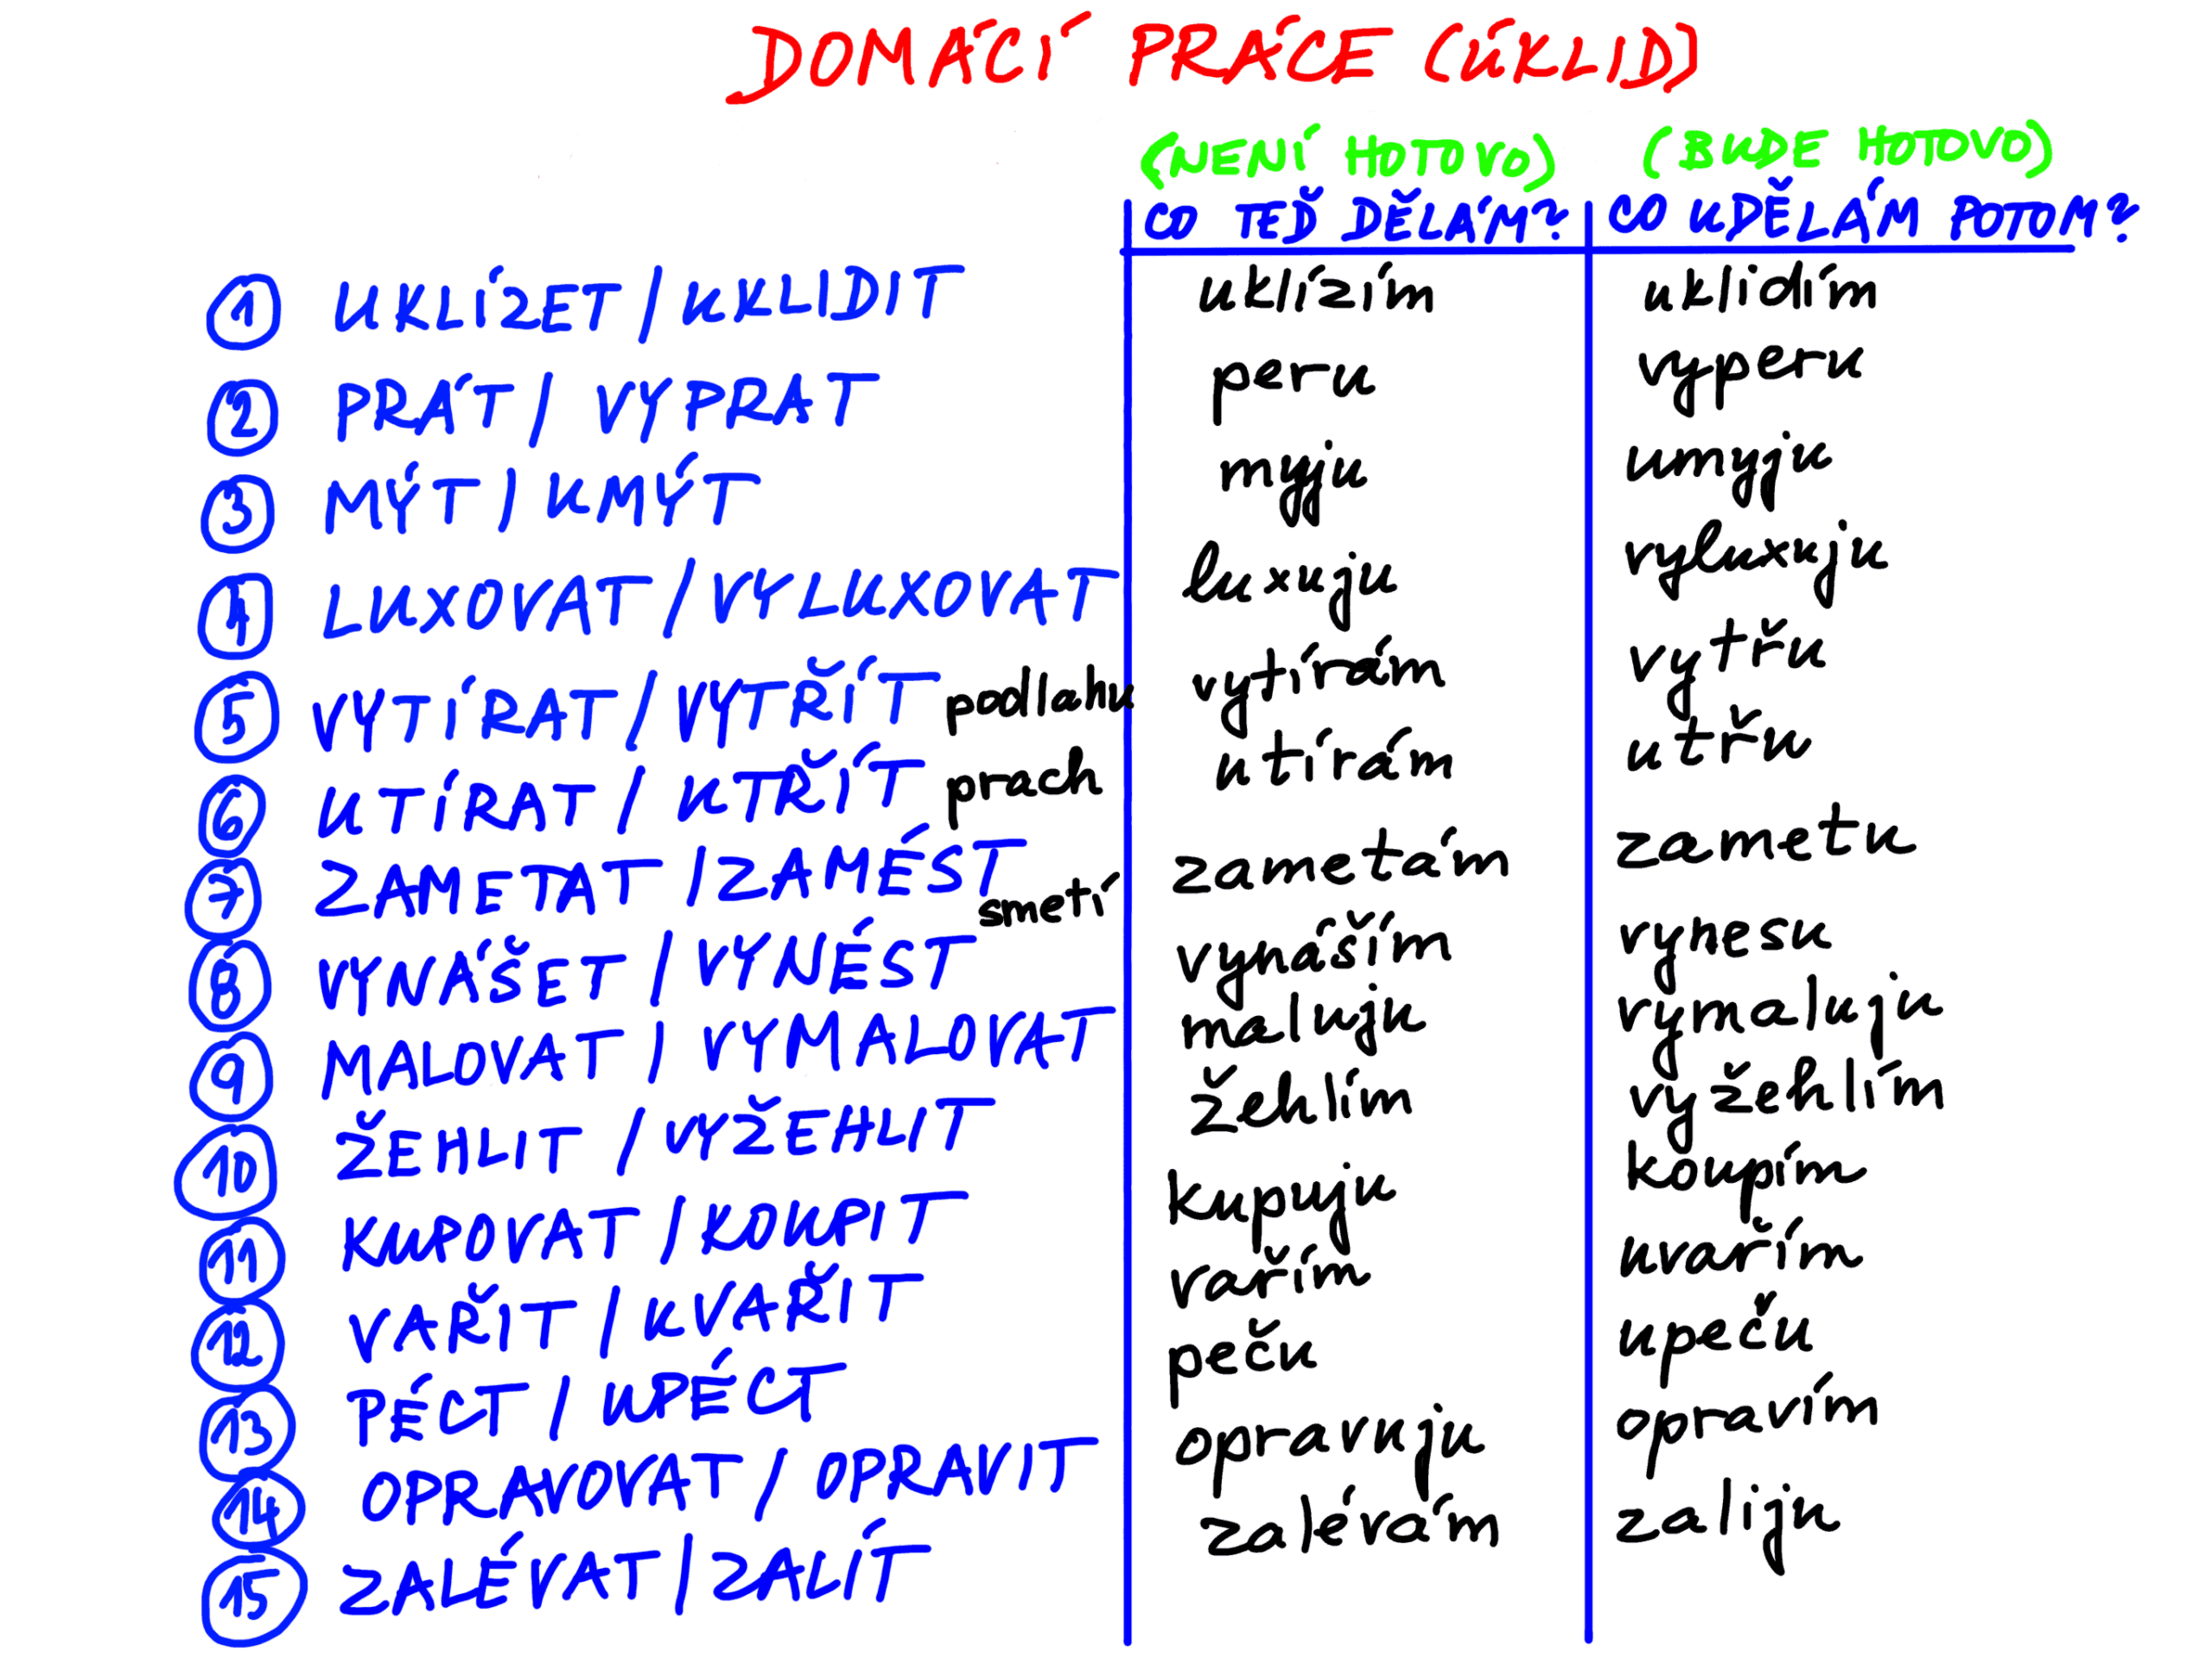 DOMÁCÍ PRÁCE (ÚKLID)
(NENÍ HOTOVO) (BUDE HOTOVO)
CO TEĎ DĚLÁM? CO UDĚLÁM POTOM?
1 UKLÍZET / UKLIDIT uklízím uklidím
2 PRÁT / VYPRAT peru vyperu
3 MÝT / UMÝT myju umyju
4 LUXOVAT / VYLUXOVAT luxuju vyluxuju
5 VYTÍRAT / VYTŘÍT podlahu vytírám vytřu
6 UTÍRAT / UTŘÍT prach utírám utřu
7 ZAMETAT / ZAMÉST smetí zametám zametu
8 VYNÁŠET / VYNÉST vynáším vynesu
9 MALOVAT / VYMALOVAT maluju vymaluju
10 ŽEHLIT / VYŽEHLIT žehlím vyžehlím
11 KUPOVAT / KOUPIT kupuju koupím
12 VAŘIT / UVAŘIT vařím uvařím
13 PÉCT / UPÉCT peču upeču
14 OPRAVOVAT / OPRAVIT opravuju opravím
15 ZALÉVAT / ZALÍT zalévám zaliju